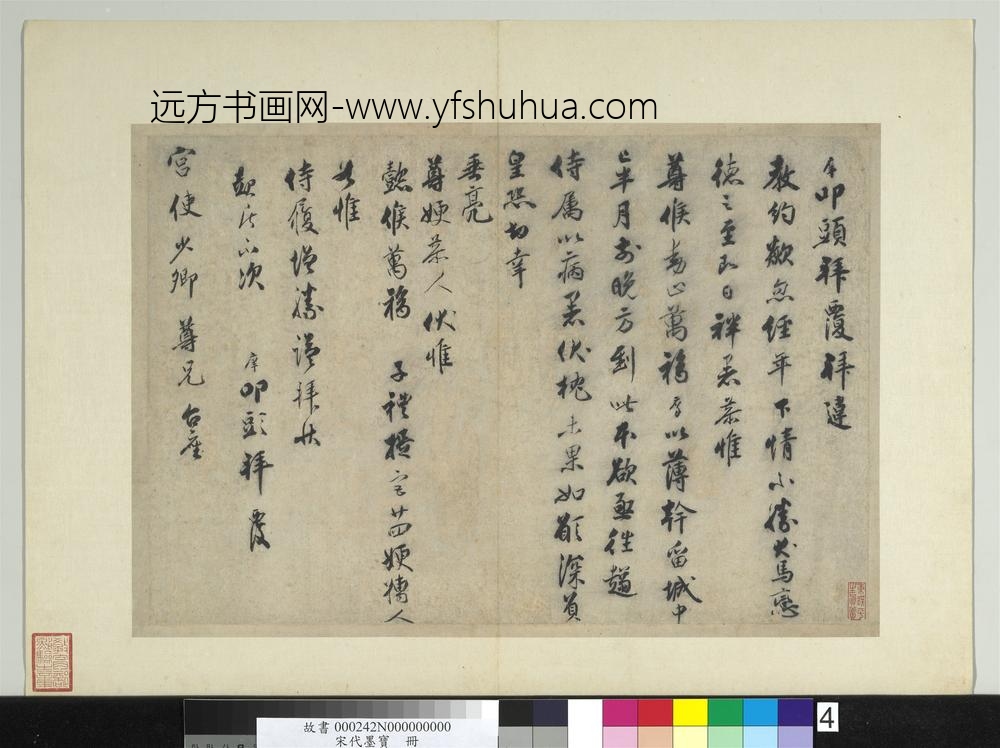 远方书画网-www.yfshuhua.com
叩頭拜覆拜違
教約欻忽經年下情不勝犬馬戀
德之至即日祥暑恭惟
尊候動止萬福以薄幹留城中
半月前晚方到此本欲亟往趨
侍屬以病暑伏枕未果如願深負
皇恐切幸
垂亮
尊嫂恭人伏惟
懿候萬福 子禮提宮廿四嫂孺人
共惟
侍履增勝謹拜狀
起居不次 叩頭拜 覆
宮使少卿 尊兄 台座
4
故書 000242N000000000
宋代墨寶 冊